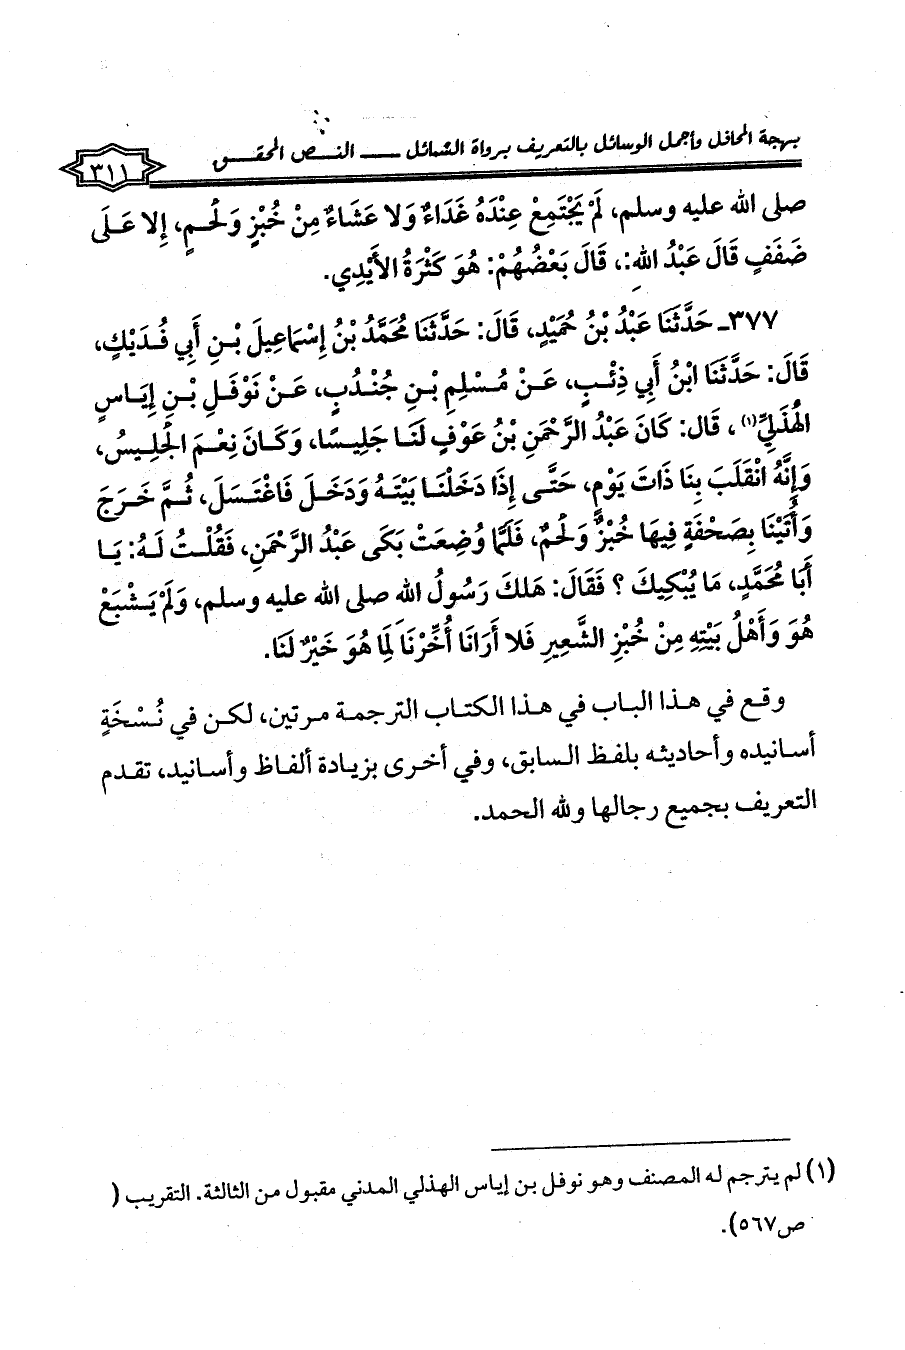 بهجة المحافل وأجمل الوسائل بالتعريف برواة الشمائل ـــ النـص المحقـق
٣١١
صلى الله عليه وسلم، لَمْ يَجْتَمِعْ عِنْدَهُ غَدَاءٌ وَلا عَشَاءٌ مِنْ خُبْزٍ وَلَحْمٍ، إِلا عَلَى
ضَفَفٍ قَالَ عَبْدُ اللهِ:، قَالَ بَعْضُهُمْ: هُوَ كَثْرَةُ الأَيْدِي.
٣٧٧ـ حَدَّثَنَا عَبْدُ بْنُ حُمَيْدٍ، قَالَ: حَدَّثَنَا مُحَمَّدُ بْنُ إِسْمَاعِيلَ بْنِ أَبِي فُدَيْكٍ،
قَالَ: حَدَّثَنَا ابْنُ أَبِي ذِئْبٍ، عَنْ مُسْلِمِ بْنِ جُنْدُبٍ، عَنْ نَوْفَلِ بْنِ إِيَاسٍ
الْهُذَلِيِّ(١)، قَال: كَانَ عَبْدُ الرَّحْمَنِ بْنُ عَوْفٍ لَنَا جَلِيسًا، وَكَانَ نِعْمَ الْجَلِيسُ،
وَإِنَّهُ انْقَلَبَ بِنَا ذَاتَ يَوْمٍ، حَتَّى إِذَا دَخَلْنَا بَيْتَهُ وَدَخَلَ فَاغْتَسَلَ، ثُمَّ خَرَجَ
وَأُتَيْنَا بِصَحْفَةٍ فِيهَا خُبْزٌ وَلَحْمٌ، فَلَمَّا وُضِعَتْ بَكَى عَبْدُ الرَّحْمَنِ، فَقُلْتُ لَهُ: يَا
أَبَا مُحَمَّدٍ، مَا يُبْكِيكَ ؟ فَقَالَ: هَلَكَ رَسُولُ الله صلى الله عليه وسلم، وَلَمْ يَشْبَعْ
هُوَ وَأَهْلُ بَيْتِهِ مِنْ خُبْزِ الشَّعِيرِ فَلا أَرَانَا أُخِّرْنَا لِمَا هُوَ خَيْرٌ لَنَا.
وقع في هذا الباب في هذا الكتاب الترجمة مرتين، لكن في نُسْخَةٍ
أسانيده وأحاديثه بلفظ السابق، وفي أخرى بزيادة ألفاظ وأسانيد، تقدم
التعريف بجميع رجالها ولله الحمد.
(١) لم يترجم له المصنف وهو نوفل بن إياس الهذلي المدني مقبول من الثالثة. التقريب (
ص٥٦٧).